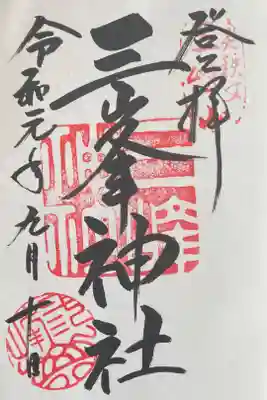 登拝
三峯神社
令和元年九月十日